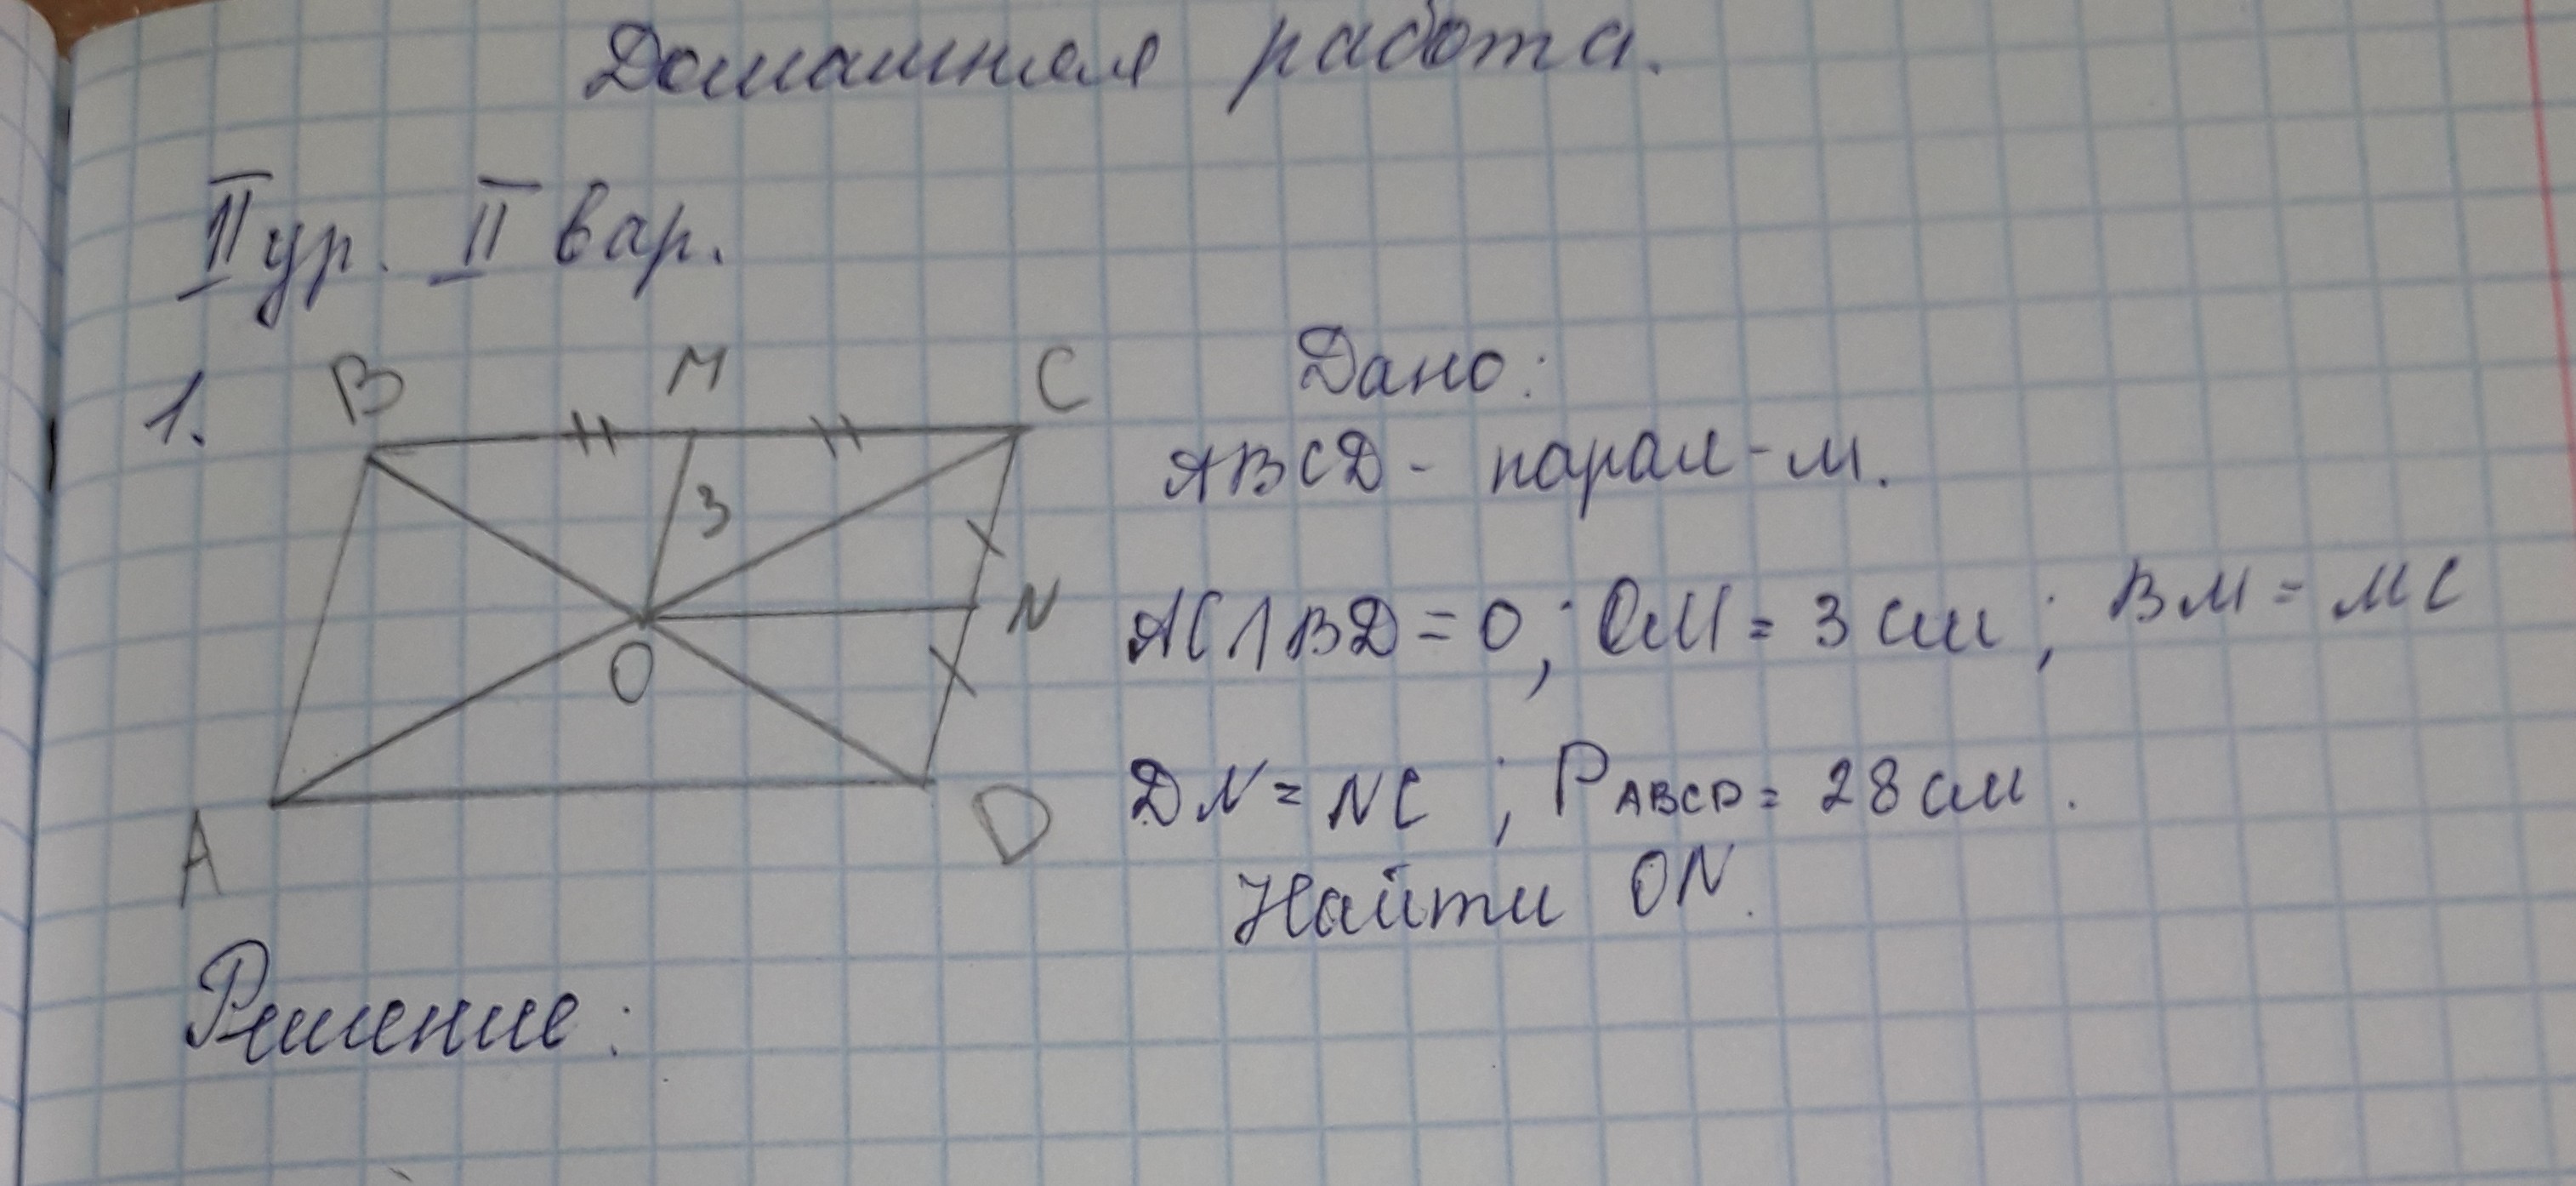 Домашняя работа.
II ур. II вар.
1.
B M C
3
N
O
A D
Дано:
ABCD - парал-м.
AC∩BD = O; OM = 3 см; BM = MC
DN = NC; PABCD = 28 см.
Найти ON.
Решение: